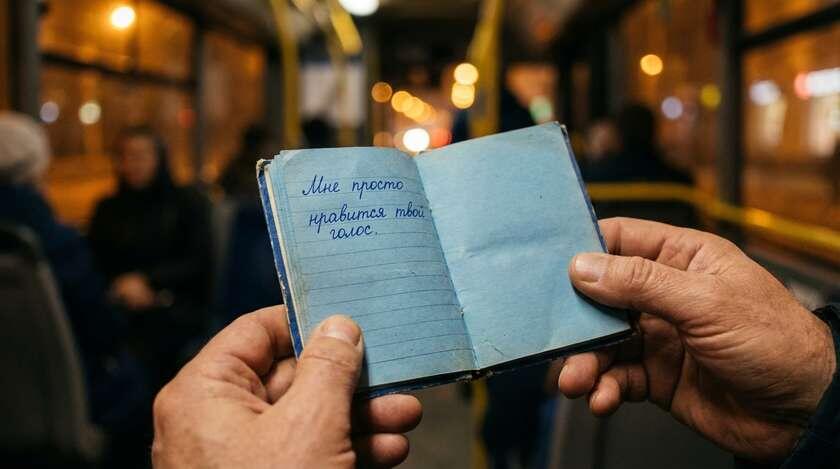 Мне просто
нравится твой
голос.